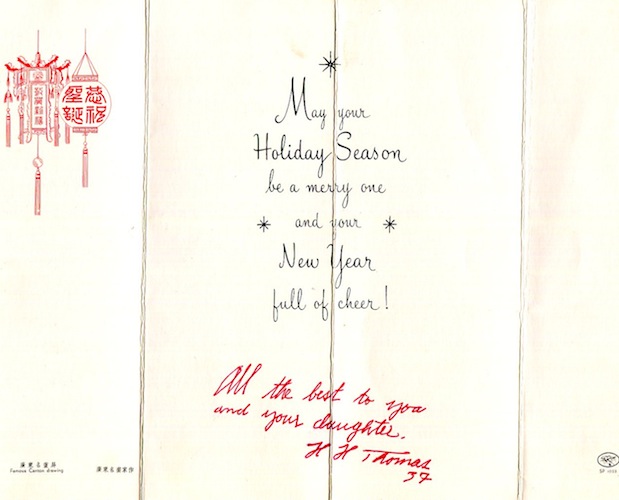 恭祝
聖誕
敬賀新禧
May your
Holiday Season
be a merry one
and your
New Year
full of cheer!
All the best to you
and your daughter.
H H Thomas
57
Famous Canton drawing
SP